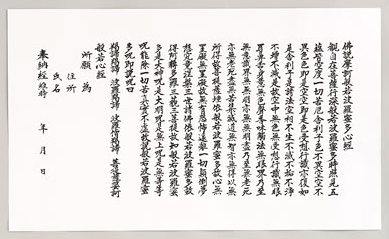 佛說摩訶般若波羅蜜多心經
觀自在菩薩行深般若波羅蜜多時照見五
蘊皆空度一切苦厄舍利子色不異空空不
異色色即是空空即是色受想行識亦復如
是舍利子是諸法空相不生不滅不垢不淨
不增不減是故空中無色無受想行識無眼
耳鼻舌身意無色聲香味觸法無眼界乃至
無意識界無無明亦無無明盡乃至無老死
亦無老死盡無苦集滅道無智亦無得以無
所得故菩提薩埵依般若波羅蜜多故心無
罣礙無罣礙故無有恐怖遠離一切顛倒夢
想究竟涅槃三世諸佛依般若波羅蜜多故
得阿耨多羅三藐三菩提故知般若波羅蜜
多是大神呪是大明呪是無上呪是無等等
呪能除一切苦真實不虛故說般若波羅蜜
多呪即說呪曰
羯諦羯諦 波羅羯諦 波羅僧羯諦 菩提薩婆訶
般若心經
所願 為
住所
氏名
奉納經 維時 年 月 日